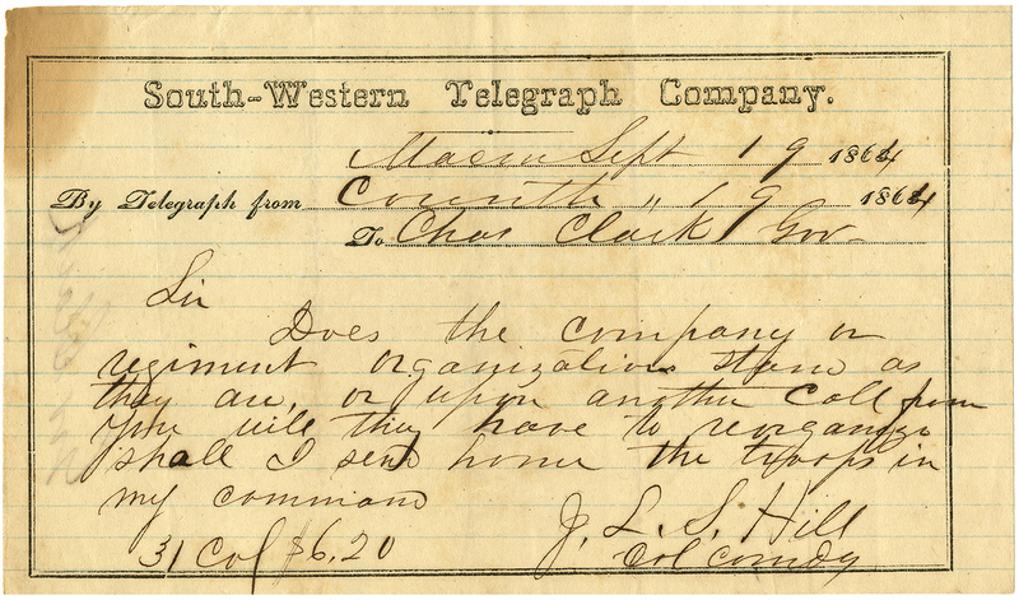 South-Western Telegraph Company.
Macon Sept 19 1864
By Telegraph from Corinth " 19 1864
To Chas Clark Gov
Sir
Does the company or
regiment organizations stand as
they are, or upon another call from
you will they have to reorganize
shall I send home the troops in
my command
J. L. S. Hill
31 Col $6.20 Col comdg